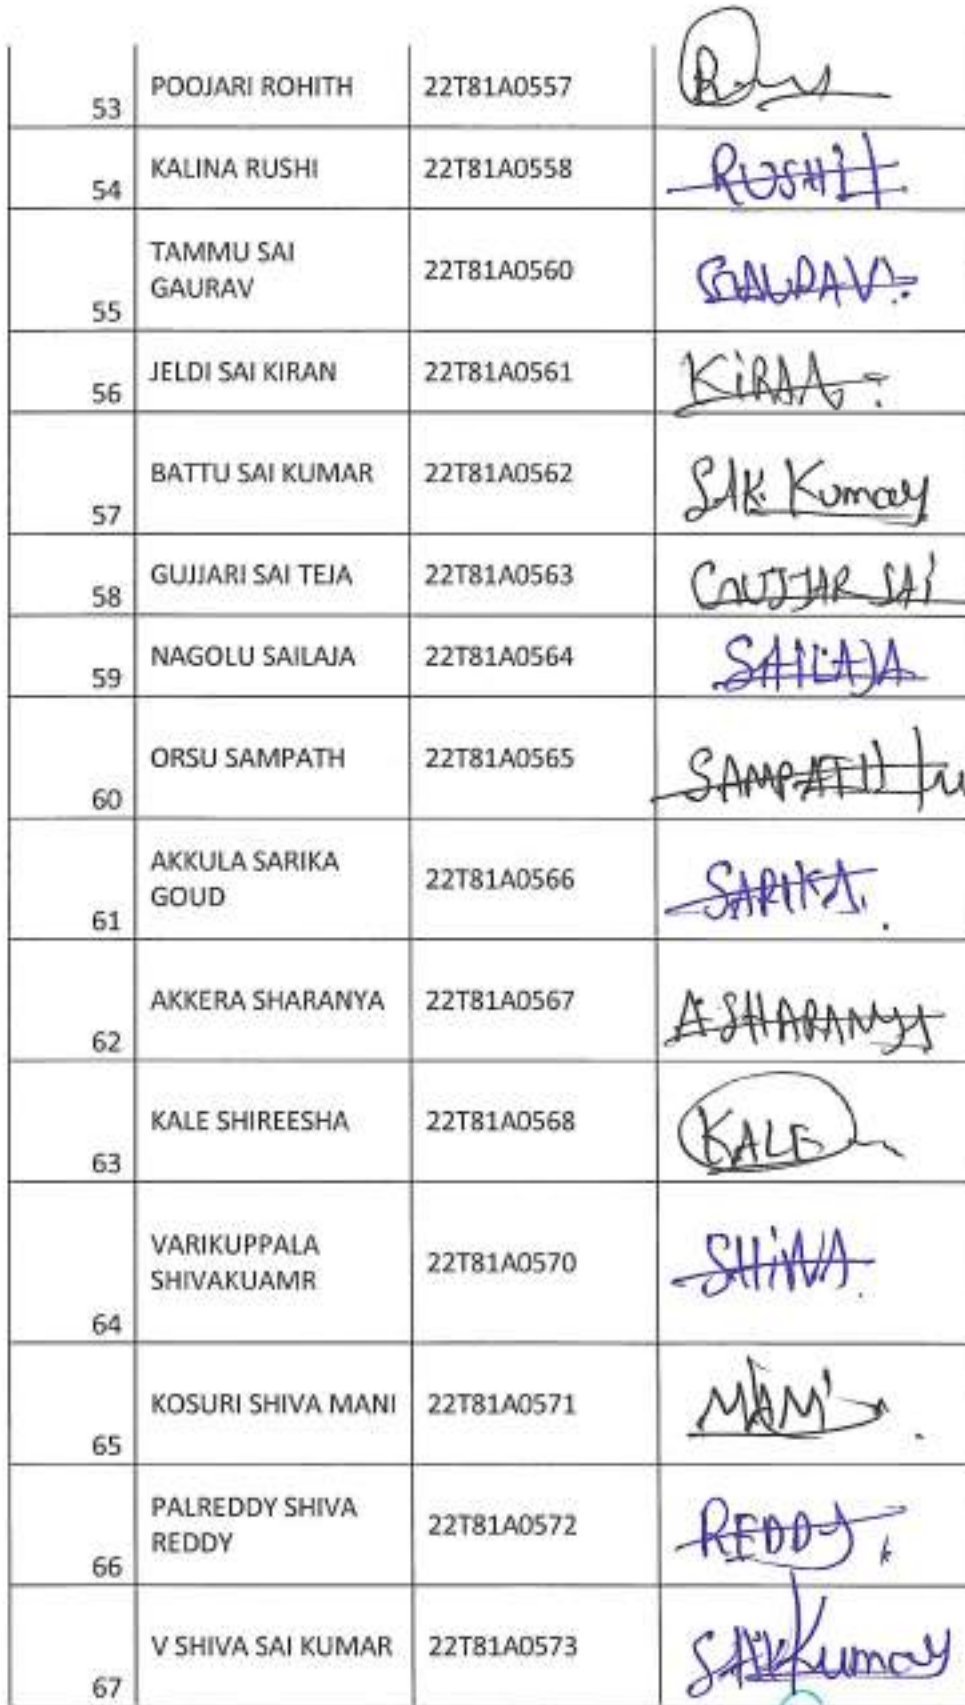 53 POOJARI ROHITH 22T81A0557
54 KALINA RUSHI 22T81A0558 RUSHI
55 TAMMU SAI GAURAV 22T81A0560 GAURAV
56 JELDI SAI KIRAN 22T81A0561 KIRAN
57 BATTU SAI KUMAR 22T81A0562 SAI Kumar
58 GUJJARI SAI TEJA 22T81A0563 GUJJAR SAI
59 NAGOLU SAILAJA 22T81A0564 SAILAJA
60 ORSU SAMPATH 22T81A0565 SAMPATH
61 AKKULA SARIKA GOUD 22T81A0566 SARIKA
62 AKKERA SHARANYA 22T81A0567 A SHARANYA
63 KALE SHIREESHA 22T81A0568 KALE
64 VARIKUPPALA SHIVAKUAMR 22T81A0570 SHIVA
65 KOSURI SHIVA MANI 22T81A0571 MANI
66 PALREDDY SHIVA REDDY 22T81A0572 REDDY
67 V SHIVA SAI KUMAR 22T81A0573 SAI Kumar